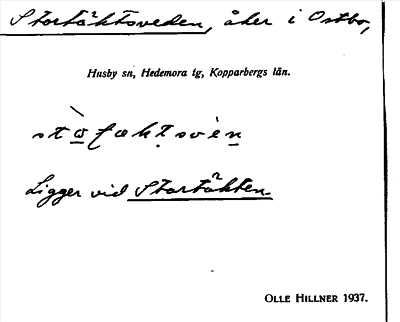 Stortäktsveden, åker i Ostbo,
Husby sn, Hedemora tg, Kopparbergs län.
Ligger vid Stortäkten
OLLE HILLNER 1937.